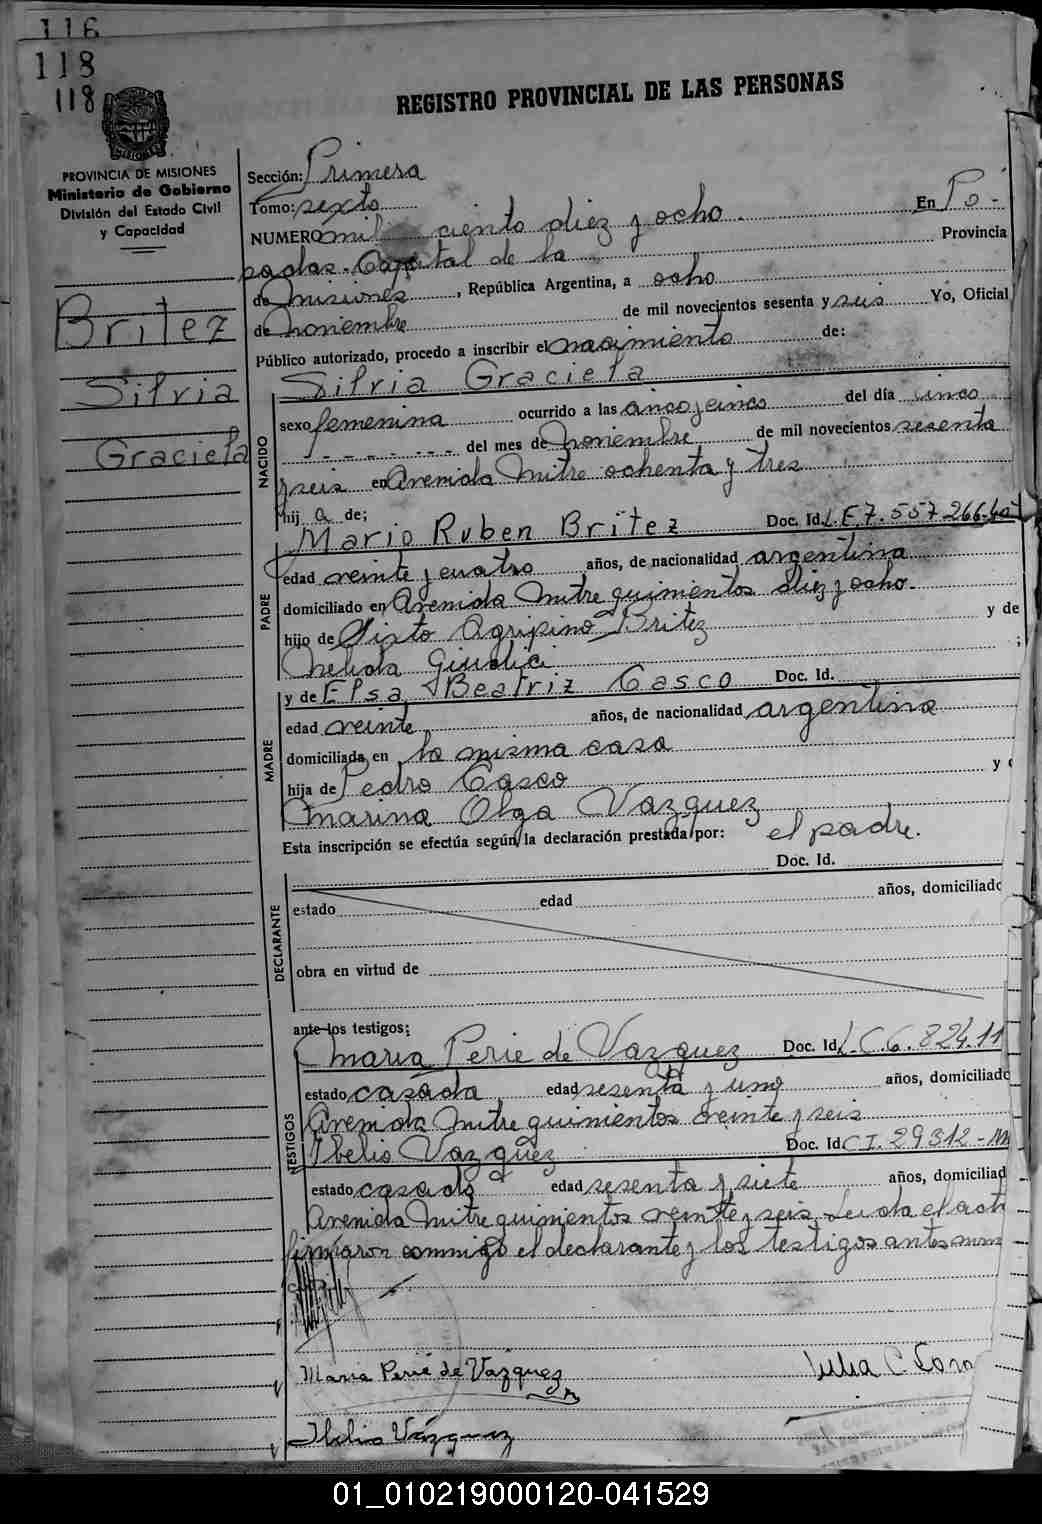 116
118
118
REGISTRO PROVINCIAL DE LAS PERSONAS
PROVINCIA DE MISIONES
Ministerio de Gobierno
División del Estado Civil
y Capacidad
Britez
Silvia
Graciela
Sección: Primera
Tomo: sexto
NUMERO mil ciento diez y ocho . En Po-
sadas. Capital de la Provincia
de misiones, República Argentina, a ocho
de noviembre de mil novecientos sesenta y seis Yo, Oficial
Público autorizado, procedo a inscribir el nacimiento de:
Silvia Graciela
NACIDO
sexo femenina ocurrido a las cinco y cinco del día cinco
- - - - - - - del mes de noviembre de mil novecientos sesenta
y seis en Avenida mitre ochenta y tres
hij a de;
Mario Ruben Britez Doc. Id. L.E. 7.557.266
PADRE
edad veinte y cuatro años, de nacionalidad argentina
domiciliado en Avenida mitre quinientos diez y ocho.
hijo de Sixto Agripino Britez y de
Melida Giudici ;
y de Elsa Beatriz Casco Doc. Id.
MADRE
edad veinte años, de nacionalidad argentina
domiciliada en la misma casa
hija de Pedro Casco y
Marina Olga Vazquez
Esta inscripción se efectúa según la declaración prestada por: el padre.
Doc. Id.
DECLARANTE
estado edad años, domiciliado
obra en virtud de
ante los testigos:
Maria Perie de Vazquez Doc. Id. L.C. 6.824.11
TESTIGOS
estado casada edad sesenta y uno años, domiciliado
Avenida mitre quinientos veinte y seis
Ibelio Vazquez Doc. Id C.I. 29312-M
estado casado edad sesenta y siete años, domiciliad
Avenida mitre quinientos veinte y seis. Leida el act
firmaron conmigo el declarante y los testigos antes
Maria Perié de Vazquez
Julia C.
Ibelio Vázquez
01_010219000120-041529